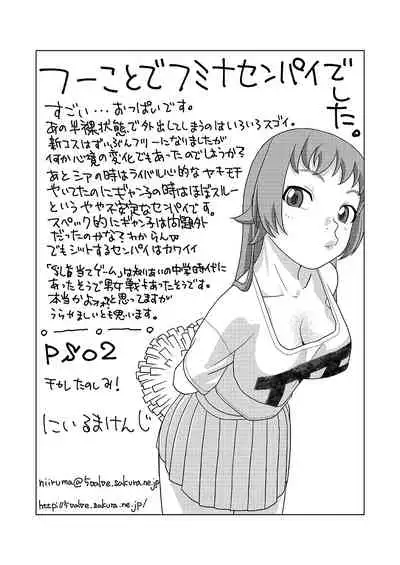 フーことでフミナセンパイでした。
すごい…おっぱいです。
あの半裸状態で外出してしまうのはいろいろスゴイ。
新コスはずいぶんフツーになりましたが
何か心境の変化でもあったのでしょうか?
あとシアの時はライバル心的なヤキモチ
やいてたのにギャン子の時はほぼスルー
というやや不安定なセンパイです。
スペック的にギャン子は問題外
だったのかな?わからんw
でもシットするセンパイはカワイイ
「乳首当てゲーム」は知り合いの中学時代に
あったそうで男女戦もあったそうです。
本当かよォォ?と思ってますが
うらやましいとも思います。
PSO2
干かしたのしみ!
にいるまけんじ
niiruma@5valve.sakura.ne.jp
http://5valve.sakura.ne.jp/